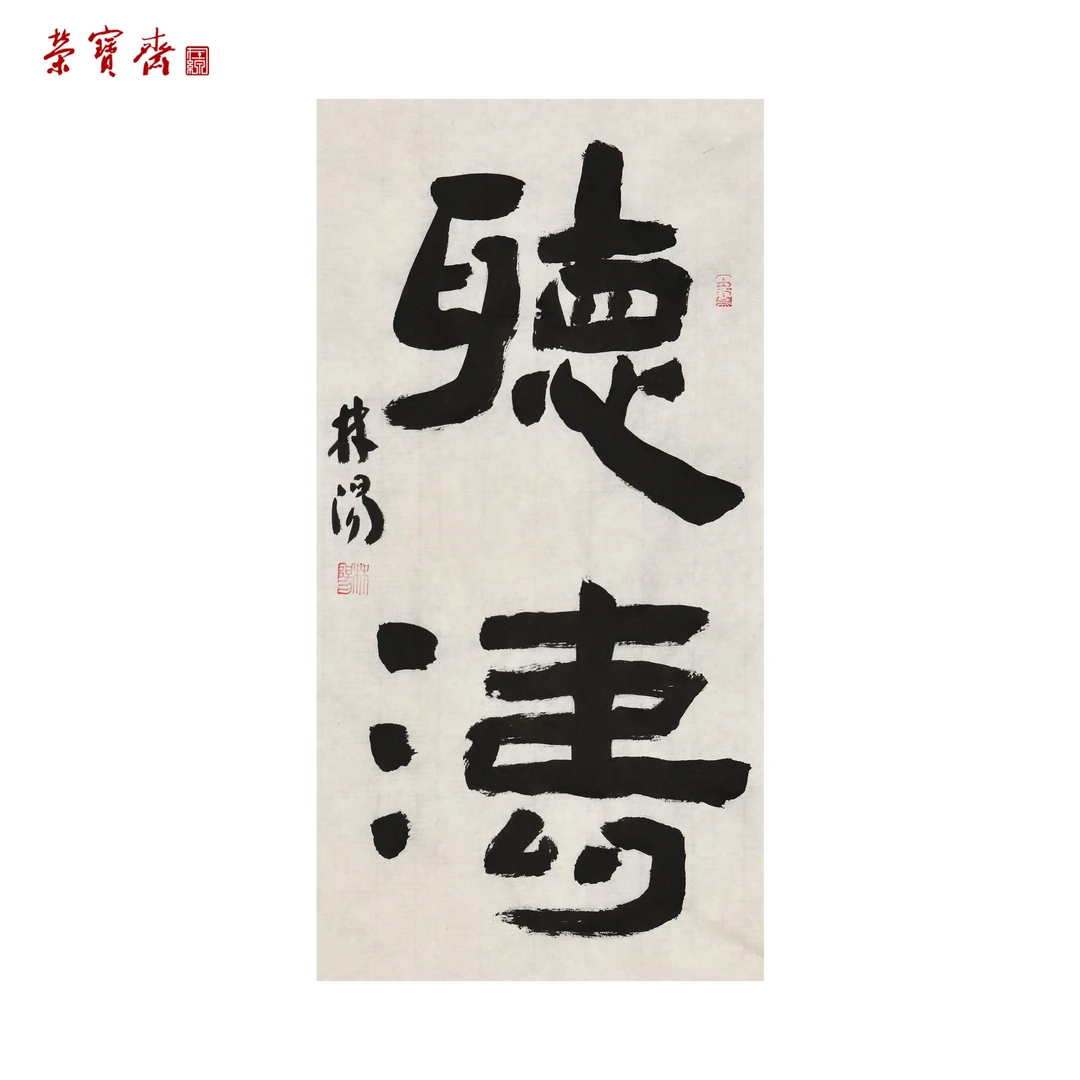 榮寶齋
聽濤
林陽